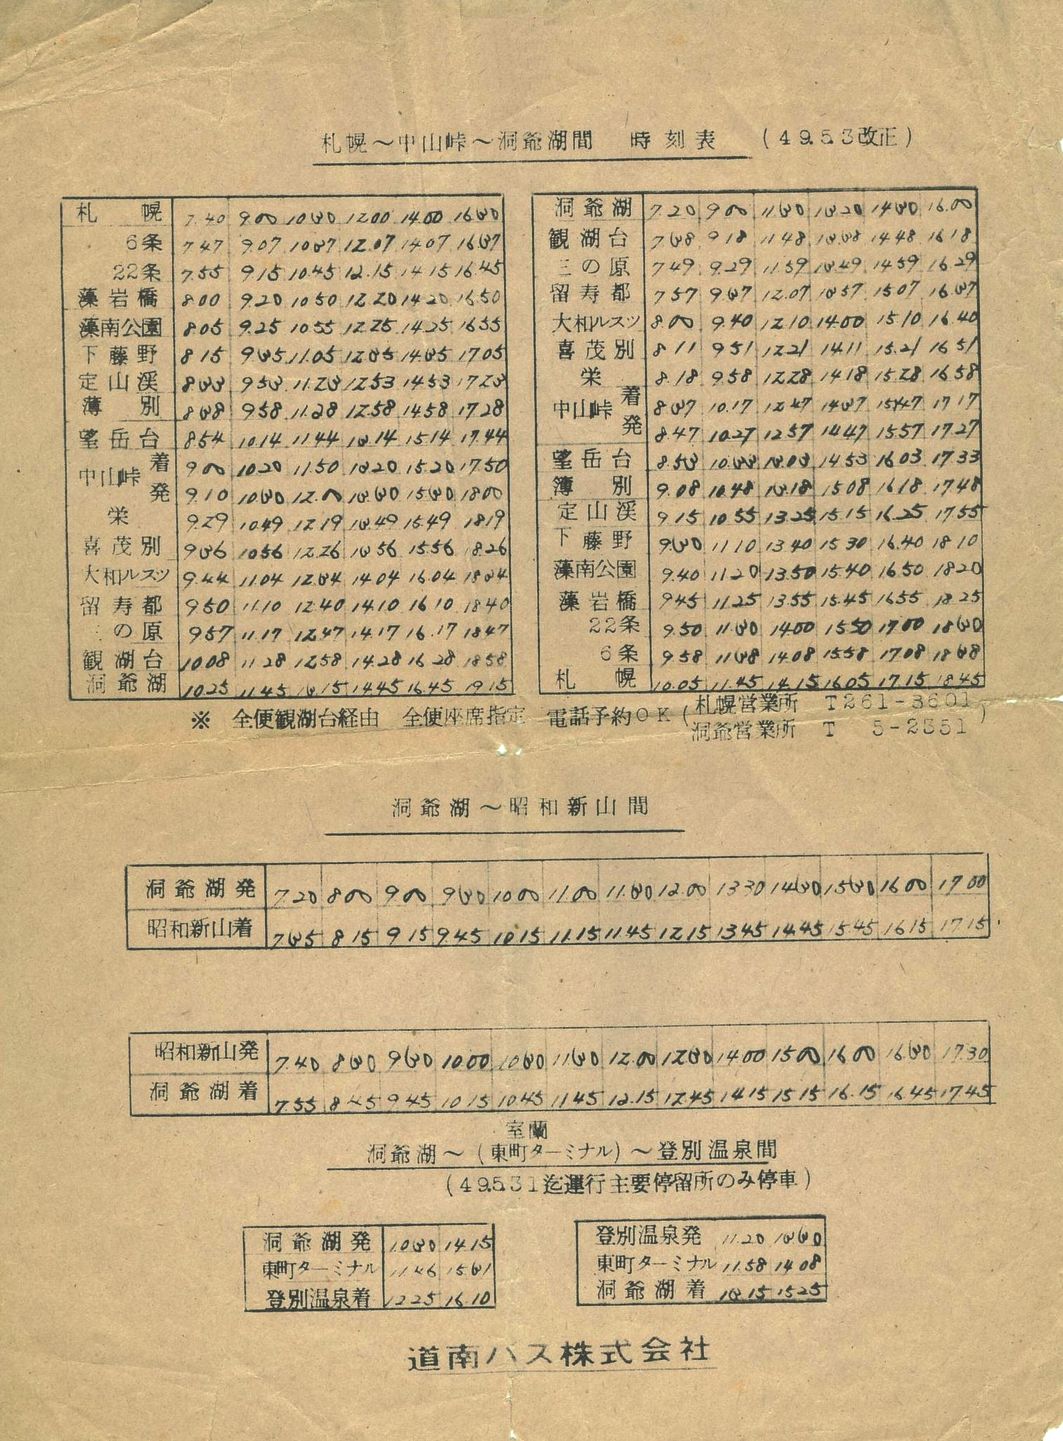 札幌～中山峠～洞爺湖間 時刻表 (49.5.3改正)
札幌 7.40 9.00 10.30 12.00 14.00 16.30
6条 7.47 9.07 10.37 12.07 14.07 16.37
22条 7.55 9.15 10.45 12.15 14.15 16.45
藻岩橋 8.00 9.20 10.50 12.20 14.20 16.50
藻南公園 8.05 9.25 10.55 12.25 14.25 16.55
下藤野 8.15 9.35 11.05 12.35 14.35 17.05
定山渓 8.33 9.53 11.23 12.53 14.53 17.23
薄別 8.38 9.58 11.28 12.58 14.58 17.28
望岳台 8.54 10.14 11.44 13.14 15.14 17.44
中山峠 着 9.00 10.20 11.50 13.20 15.20 17.50
発 9.10 10.30 12.00 13.30 15.30 18.00
栄 9.29 10.49 12.19 13.49 15.49 18.19
喜茂別 9.36 10.56 12.26 13.56 15.56 18.26
大和ルスツ 9.44 11.04 12.34 14.04 16.04 18.34
留寿都 9.50 11.10 12.40 14.10 16.10 18.40
三の原 9.57 11.17 12.47 14.17 16.17 18.47
観湖台 10.08 11.28 12.58 14.28 16.28 18.58
洞爺湖 10.25 11.45 13.15 14.45 16.45 19.15
洞爺湖 7.20 9.00 11.30 13.20 14.30 16.00
観湖台 7.38 9.18 11.48 13.38 14.48 16.18
三の原 7.49 9.29 11.59 13.49 14.59 16.29
留寿都 7.57 9.37 12.07 13.57 15.07 16.37
大和ルスツ 8.00 9.40 12.10 14.00 15.10 16.40
喜茂別 8.11 9.51 12.21 14.11 15.21 16.51
栄 8.18 9.58 12.28 14.18 15.28 16.58
中山峠 着 8.37 10.17 12.47 14.37 15.47 17.17
発 8.47 10.27 12.57 14.47 15.57 17.27
望岳台 8.53 10.33 13.03 14.53 16.03 17.33
薄別 9.08 10.48 13.18 15.08 16.18 17.48
定山渓 9.15 10.55 13.25 15.15 16.25 17.55
下藤野 9.30 11.10 13.40 15.30 16.40 18.10
藻南公園 9.40 11.20 13.50 15.40 16.50 18.20
藻岩橋 9.45 11.25 13.55 15.45 16.55 18.25
22条 9.50 11.30 14.00 15.50 17.00 18.30
6条 9.58 11.38 14.08 15.58 17.08 18.38
札幌 10.05 11.45 14.15 16.05 17.15 18.45
※ 全便観湖台経由 全便座席指定 電話予約OK (札幌営業所 T261-3601
洞爺営業所 T 5-2351)
洞爺湖～昭和新山間
洞爺湖発 7.20 8.00 9.00 9.30 10.00 11.00 11.30 12.00 13.30 14.30 15.30 16.00 17.00
昭和新山着 7.35 8.15 9.15 9.45 10.15 11.15 11.45 12.15 13.45 14.45 15.45 16.15 17.15
昭和新山発 7.40 8.30 9.30 10.00 10.30 11.30 12.00 12.30 14.00 15.00 16.00 16.30 17.30
洞爺湖着 7.55 8.45 9.45 10.15 10.45 11.45 12.15 12.45 14.15 15.15 16.15 16.45 17.45
室蘭
洞爺湖～(東町ターミナル)～登別温泉間
(49.5.31迄運行主要停留所のみ停車)
洞爺湖発 10.30 14.15
東町ターミナル 11.46 15.31
登別温泉着 12.25 16.10
登別温泉発 11.20 13.30
東町ターミナル 11.58 14.08
洞爺湖着 13.15 15.25
道南バス株式会社